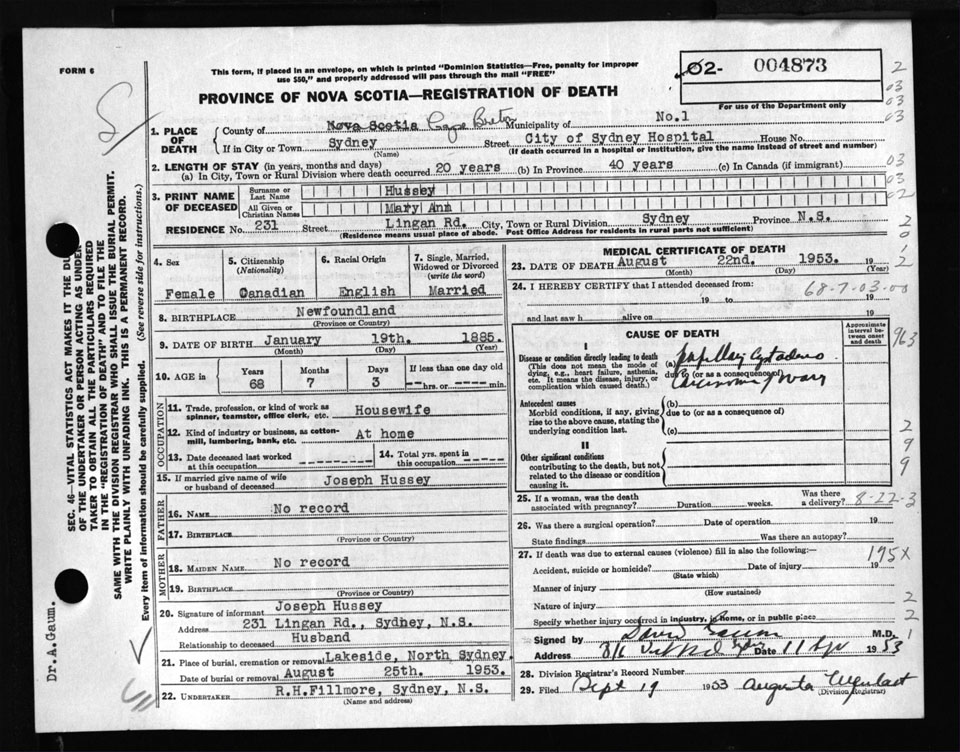 FORM 6
This form, if placed in an envelope, on which is printed "Dominion Statistics—Free, penalty for improper
use $50," and properly addressed will pass through the mail "FREE"
02- 004873
For use of the Department only
PROVINCE OF NOVA SCOTIA—REGISTRATION OF DEATH
1. PLACE OF DEATH
County of Nova Scotia Cape Breton Municipality of No.1
If in City or Town Sydney Street City of Sydney Hospital House No.
(Name) (If death occurred in a hospital or institution, give the name instead of street and number)
2. LENGTH OF STAY (in years, months and days)
(a) In City, Town or Rural Division where death occurred 20 years (b) In Province 40 years (c) In Canada (if immigrant)
3. PRINT NAME OF DECEASED
Surname or Last Name Hussey
All Given or Christian Names Mary Ann
RESIDENCE No. 231 Street Lingan Rd. City, Town or Rural Division Sydney Province N.S.
(Residence means usual place of abode. Post Office Address for residents in rural parts not sufficient)
4. Sex
5. Citizenship (Nationality)
6. Racial Origin
7. Single, Married, Widowed or Divorced (write the word)
Female Canadian English Married
8. BIRTHPLACE Newfoundland
(Province or Country)
9. DATE OF BIRTH January 19th. 1885.
(Month) (Day) (Year)
10. AGE in
Years Months Days If less than one day old
68 7 3 hrs. or min.
OCCUPATION
11. Trade, profession or kind of work as spinner, teamster, office clerk, etc. Housewife
12. Kind of industry or business, as cotton-mill, lumbering, bank, etc. At home
13. Date deceased last worked at this occupation
14. Total yrs. spent in this occupation
15. If married give name of wife or husband of deceased Joseph Hussey
FATHER
16. NAME No record
17. BIRTHPLACE
(Province or Country)
MOTHER
18. MAIDEN NAME No record
19. BIRTHPLACE
(Province or Country)
20. Signature of informant Joseph Hussey
Address 231 Lingan Rd., Sydney, N.S.
Relationship to deceased Husband
21. Place of burial, cremation or removal Lakeside, North Sydney.
Date of burial or removal August 25th. 1953.
22. UNDERTAKER R.H.Fillmore, Sydney, N.S.
(Name and address)
MEDICAL CERTIFICATE OF DEATH
23. DATE OF DEATH August 22nd. 1953. 19
(Month) (Day) (Year)
24. I HEREBY CERTIFY that I attended deceased from:
68-7-03-00
19 to 19
and last saw h alive on 19
CAUSE OF DEATH
Approximate interval between onset and death
I
Disease or condition directly leading to death
(This does not mean the mode of dying, e.g., heart failure, asthenia, etc. It means the disease, injury, or complication which caused death.)
(a) papillary cystadeno
due to (or as a consequence of)
carcinoma of ovary
Antecedent causes
Morbid conditions, if any, giving rise to the above cause, stating the underlying condition last.
(b)
due to (or as a consequence of)
(c)
II
Other significant conditions
contributing to the death, but not related to the disease or condition causing it.
25. If a woman, was the death associated with pregnancy? Duration weeks. Was there a delivery? 8-22-3
26. Was there a surgical operation? Date of operation 19
State findings Was there an autopsy?
27. If death was due to external causes (violence) fill in also the following: 175X
Accident, suicide or homicide? Date of injury 19
(State which)
Manner of injury
(How sustained)
Nature of injury
Specify whether injury occurred in industry, in home, or in public place
Signed by David Gaum M.D.
Address Date 11 Sep 1953
28. Division Registrar's Record Number
29. Filed Sept 19 1953 Augusta
(Division Registrar)
SEC. 46—VITAL STATISTICS ACT MAKES IT THE DU
OF THE UNDERTAKER OR PERSON ACTING AS UNDER
TAKER TO OBTAIN ALL THE PARTICULARS REQUIRED
IN THE "REGISTRATION OF DEATH" AND TO FILE THE
SAME WITH THE DIVISION REGISTRAR WHO SHALL ISSUE THE BURIAL PERMIT.
WRITE PLAINLY WITH UNFADING INK. THIS IS A PERMANENT RECORD.
Every item of information should be carefully supplied. (See reverse side for instructions.)
Dr.A.Gaum.
2
03
03
03
03
03
02
2
0
1
2
963
2
9
9
2
2
1